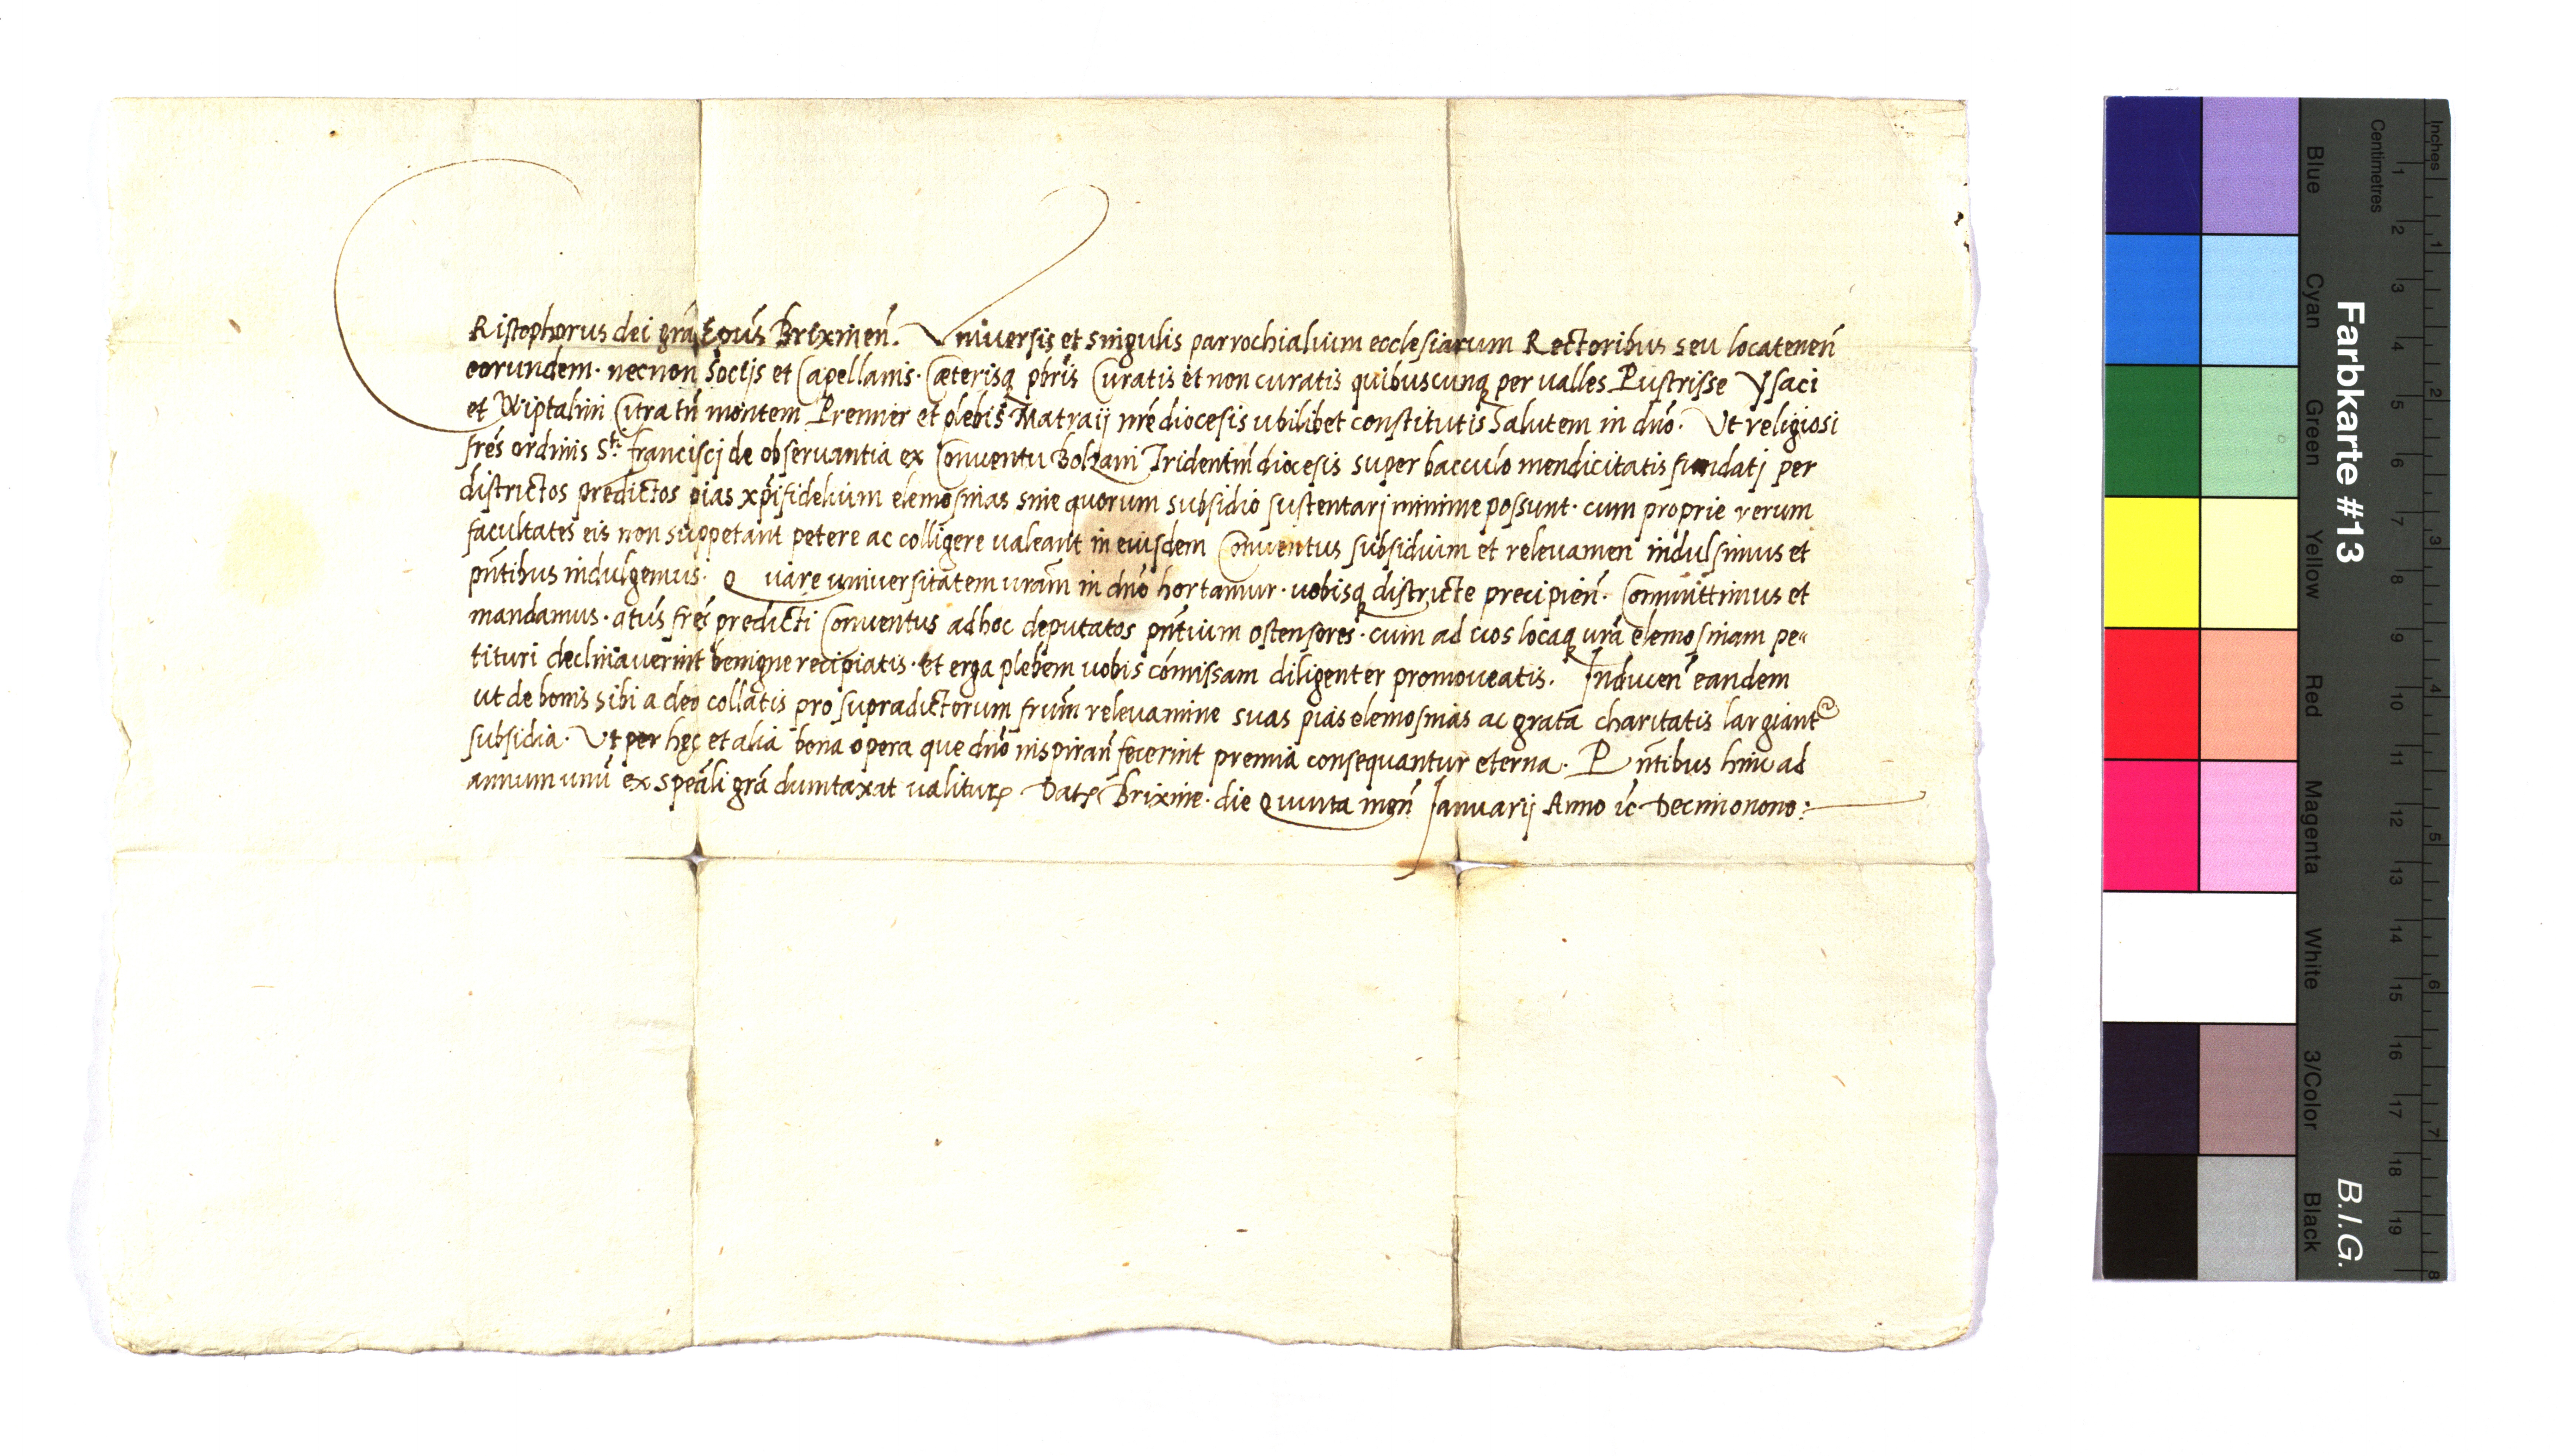 CRistophorus dei grã Epũs Brixineñ. Universis et singulis parrochialium ecclesiarum Rectoribus seu locateneñ
eorundem· necnon Socijs et Capellanis· Cæterisq pbris Curatis et non curatis quibuscunq per valles Pustrisse Ysaci
et Wiptalini Citra tñ montem Prenner et plebis Matraij nrẽ diocesis ubilibet constitutis Salutem in dnõ. Ut religiosi
frẽs ordinis Sti francisci de observantia ex Conventu Bolzani Tridentiñ diocesis super bacculo mendicitatis fundatj per
districtos predictos pias xpĩfidelium elemosinas sine quorum subsidio sustentarj minime possunt· cum proprie rerum
facultates eis non suppetant petere ac colligere valeant in eiusdem Conventus subsidium et relevamen indulsimus et
pñtibus indulgemus· Quare universitatem vrãm in dnõ hortamur· vobisq districte precipieñ· Committimus et
mandamus· atũs frẽs predicti Conventus adhoc deputatos pñtium ostensores· cum ad vos locaq vrã elemosinam pe„
tituri declinaverint benigne recipiatis· Et erga plebem vobis cõmissam diligenter promoveatis. Induceñ eandem
ut de bonis sibi a deo collatis pro supradictorum frũm relevamine suas pias elemosinas ac grata charitatis largiant
subsidia· Ut per hęc et alia bona opera que dnõ inspirañ fecerint premia consequantur eterna· Pñtibus hinc ad
annum unũ ex speãli grã dumtaxat valitur Dat Brixine· die Quinta meñ Januarij Anno ic Decimonono:
Farbkarte #13
B.I.G.
Blue Cyan Green Yellow Red Magenta White 3/Color Black
Centimetres 1 2 3 4 5 6 7 8 9 10 11 12 13 14 15 16 17 18 19
Inches 1 2 3 4 5 6 7 8